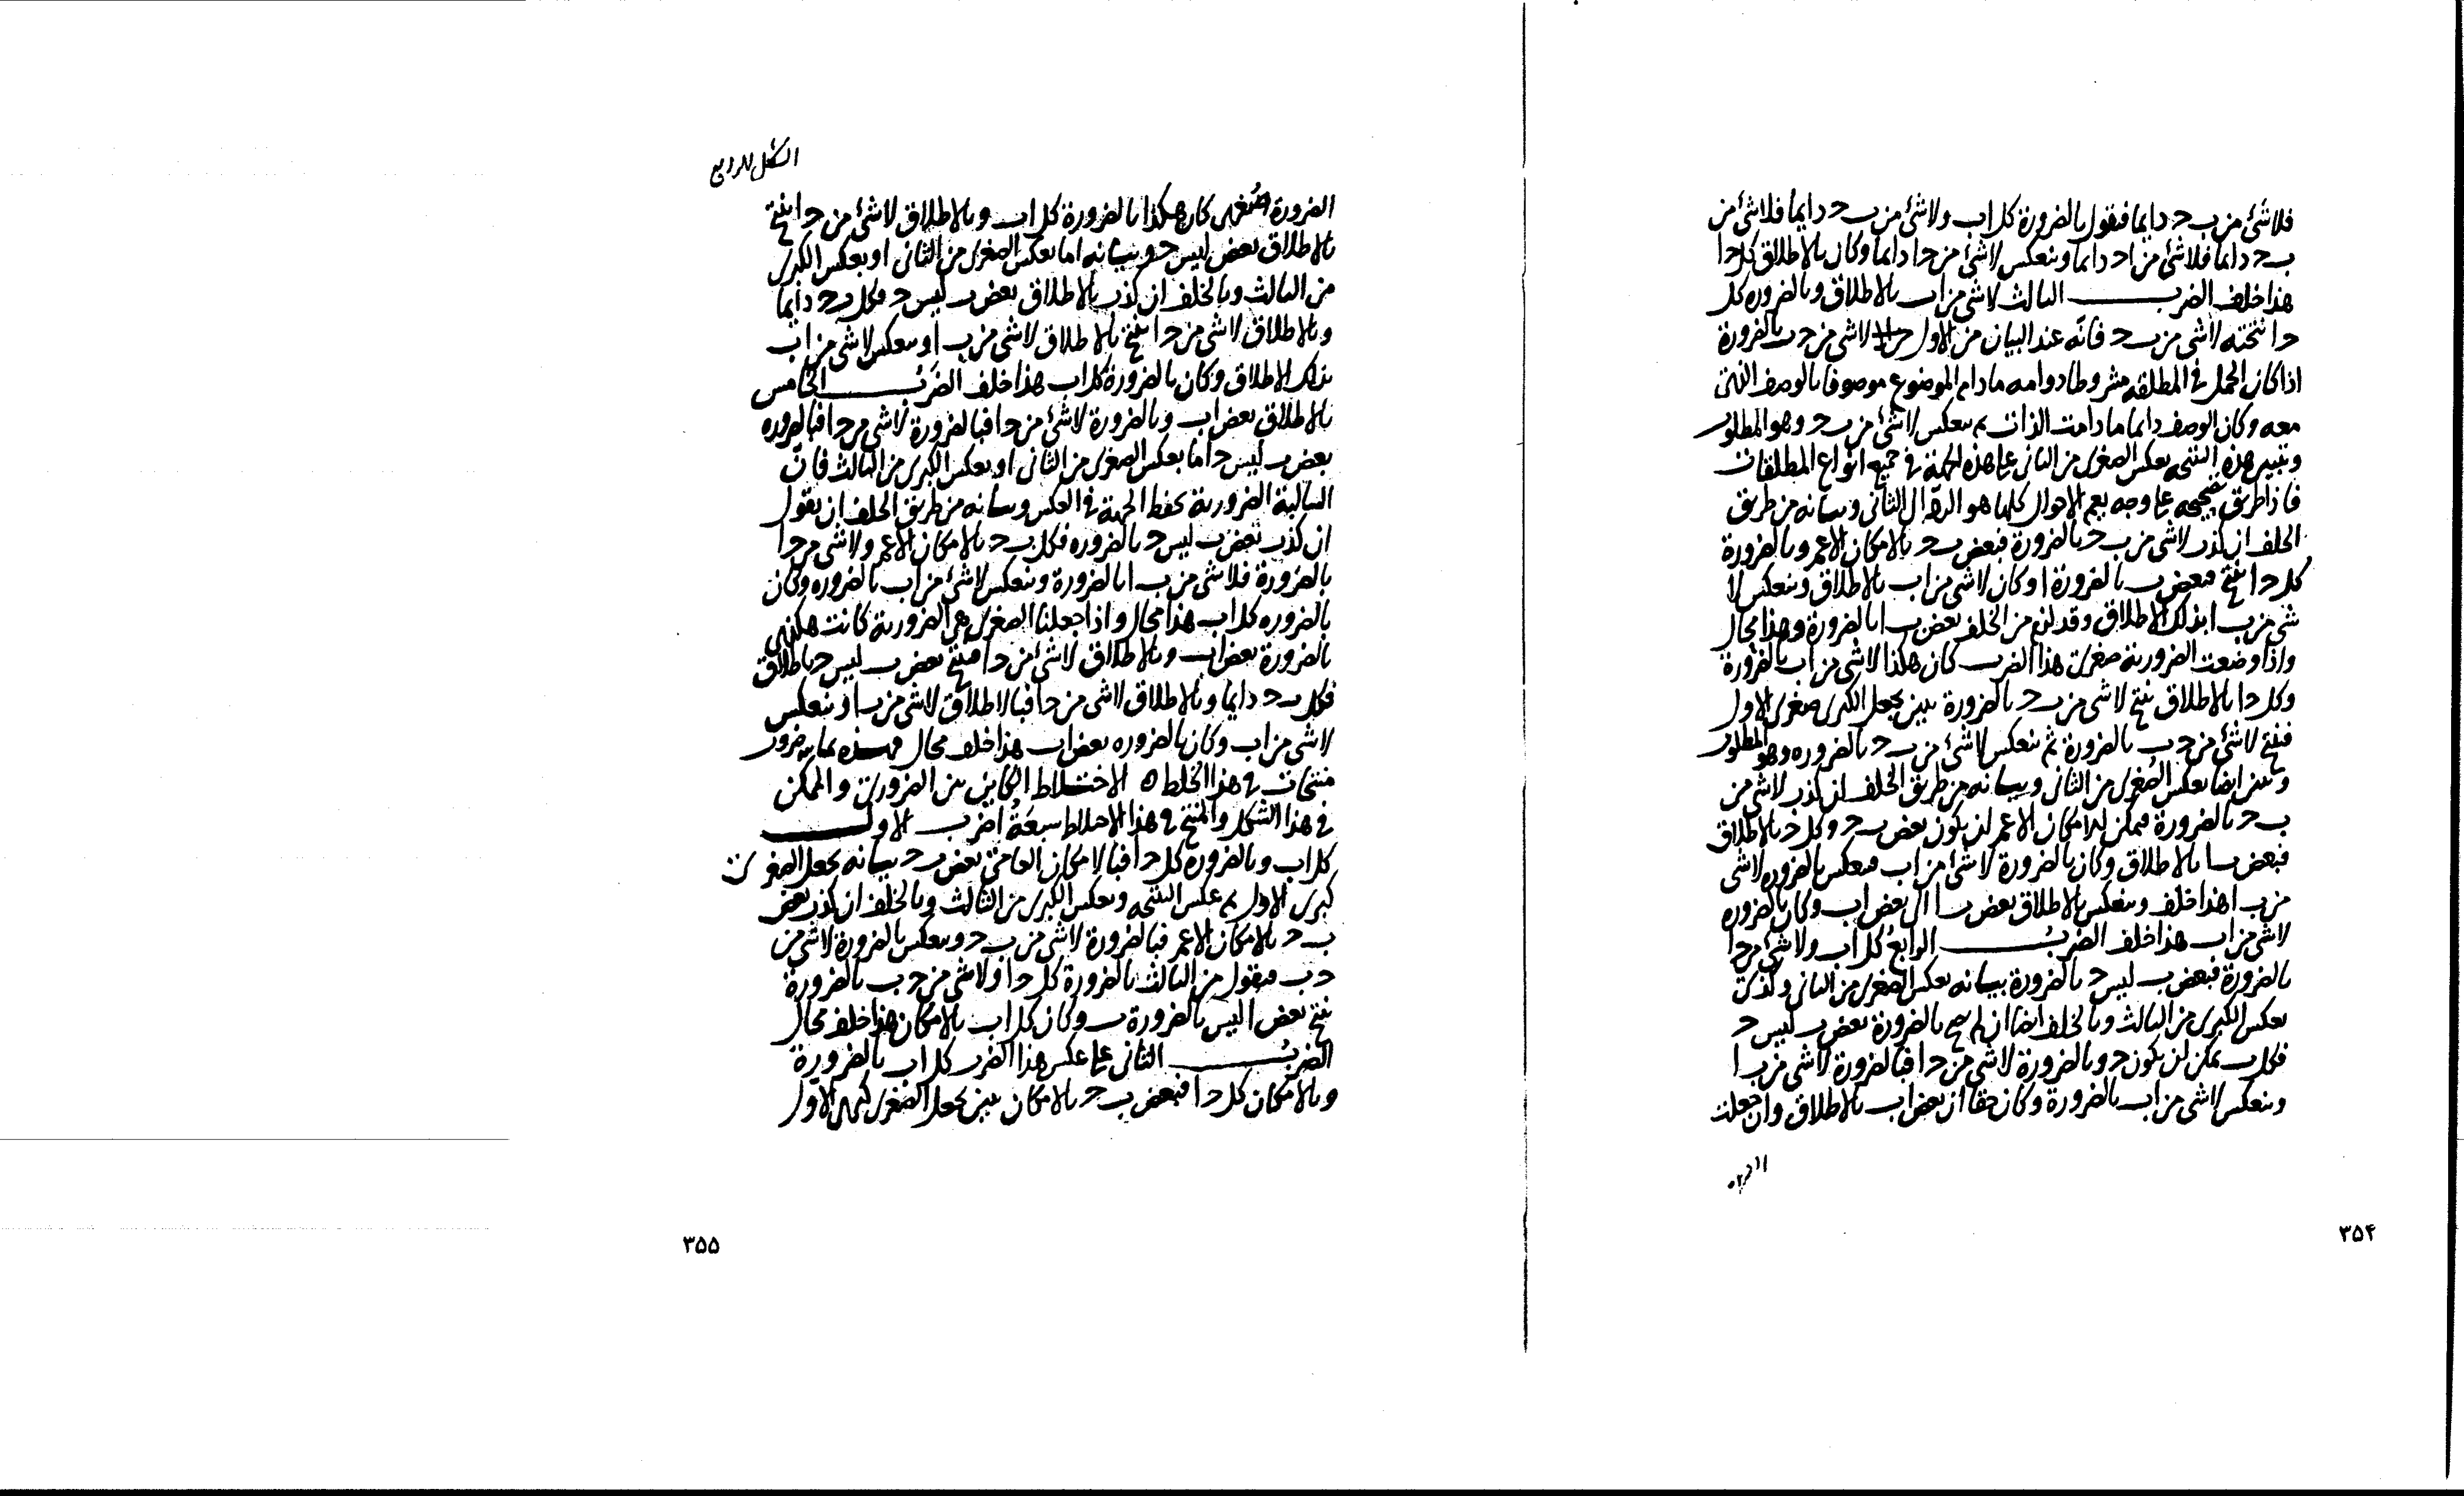 فلا شئ من ب ح دايما فنقول بالضرورة كل اب ولا شئ من ب ح دايما فلا شئ من
ب ح دايما فلا شئ من ا ح دايما وينعكس لا شئ من ح ا دايما وكان بالاطلاق كل ح ا
هذا خلف الضرب الثالث لا شى من اب بالاطلاق وبالضروره كل
ح ا نتجته لا شى من ب ح فانه عند البيان من الاول لا شى من ح ب بالضرورة
اذا كان الحمل فى المطلقه مشروطا دوامه مادام الموضوع موصوفا بالوصف الذى
معه وكان الوصف دايما مادامت الذات ثم ينعكس لا شئ من ب ح وهو المطلوب
وتبيين هذه النتيجه بعكس الصغرى من الثانى على هذه الجهة فى جميع انواع المطلقات
فاذا طريق تصحيحه على وجه يعم الاحوال كلها هو الرد الى الثانى وبيانه من طريق
الخلف ان كذب لا شى من ب ح بالضرورة فبعض ب ح بالامكان الاعم وبالضرورة
كل ح ا ينتج فبعض ب بالضرورة ا وكان لا شى من اب بالاطلاق وينعكس لا
شى من ب ا بذلك الاطلاق وقد لزم من الخلف بعض ب ا بالضرورة وهذا محال
واذا وضعت الضرورية صغرى هذا الضرب كان هكذا لا شى من اب بالضرورة
وكل ح ا بالاطلاق ينتج لا شى من ب ح بالضرورة يبين بجعل الكبرى صغرى الاول
فينتج لا شئ من ح ب بالضرورة ثم ينعكس لا شئ من ب ح بالضروره وهو المطلوب
وتبين ايضا بعكس الصغرى من الثانى وبيانه من طريق الخلف ان كذب لا شى من
ب ح بالضرورة فيمكن بالامكان الاعم ان يكون بعض ب ح وكل ح ا بالاطلاق
فبعض ب ا بالاطلاق وكان بالضرورة لا شئ من اب فينعكس بالضروره لا شى
من ب ا هذا خلف وينعكس بالاطلاق بعض ب ا الى بعض اب وكان بالضروره
لا شى من اب هذا خلف الضرب الرابع كل اب ولا شئ من ح ا
بالضرورة فبعض ب ليس ح بالضرورة بيانه بعكس الصغرى من الثانى وكذلك
بعكس الكبرى من الثالث وبالخلف ايضا ان لم يصح بالضرورة بعض ب ليس ح
فكل ب يمكن ان يكون ح وبالضرورة لا شى من ح ا فبالضرورة لا شى من ب ا
وينعكس لا شى من اب بالضرورة وكان حقا ان بعض اب بالاطلاق وان جعلت
۳۵۴
الشكل الرابع
الضرورة صغرى كان هكذا بالضرورة كل اب وبالاطلاق لا شئ من ح ا ينتج
بالاطلاق بعض ب ليس ح وبيانه اما بعكس الصغرى من الثانى او بعكس الكبرى
من الثالث وبالخلف ان كذب بالاطلاق بعض ب ليس ح فكل ب ح دايما
وبالاطلاق لا شى من ح ا ينتج بالاطلاق لا شى من ب ا وينعكس لا شى من اب
بذلك الاطلاق وكان بالضرورة كل اب هذا خلف الضرب الخامس
بالاطلاق بعض اب وبالضرورة لا شئ من ح ا فبالضرورة لا شى من ح ا فبالضروره
بعض ب ليس ح اما بعكس الصغرى من الثانى او بعكس الكبرى من الثالث فان
السالبة الضرورية تحفظ الجهة فى العكس وبيانه من طريق الخلف ان نقول
ان كذب بعض ب ليس ح بالضروره فكل ب ح بالامكان الاعم ولا شى من ح ا
بالضرورة فلا شى من ب ا بالضرورة وينعكس لا شئ من اب بالضروره وكان
بالضروره كل اب هذا محال واذا جعلنا الصغرى هى الضرورية كانت هكذى
بالضرورة بعض اب وبالاطلاق لا شئ من ح ا فينتج بعض ب ليس ح باطلاق
فكل ب ح دايما وبالاطلاق لا شى من ح ا فبالاطلاق لا شى من ب ا وينعكس
لا شى من اب وكان بالضروره بعض اب هذا خلف محال فهذه ثمانيه ضروب
منتجات فى هذا الخلط ه الاختلاط الكاين من الضرورى والممكن
فى هذا الشكل والمنتج فى هذا الاختلاط سبعة اضرب الاول
كل اب وبالضروره كل ح ا فبالامكان العامى بعض ب ح بيانه بجعل الصغرى
كبرى الاول ثم عكس النتيجه وبعكس الكبرى من الثالث وبالخلف ان كذب بعض
ب ح بالامكان الاعم فبالضرورة لا شى من ب ح وينعكس بالضرورة لا شى من
ح ب فنقول من الثالث بالضرورة كل ح ا ولا شى من ح ب بالضرورة
ينتج بعض ا ليس بالضرورة ب وكان كل اب بالامكان هذا خلف محال
الضرب الثانى على عكس هذا الضرب كل اب بالضرورة
وبالامكان كل ح ا فبعض ب ح بالامكان يبين بجعل الصغرى كبرى الاول
۳۵۵